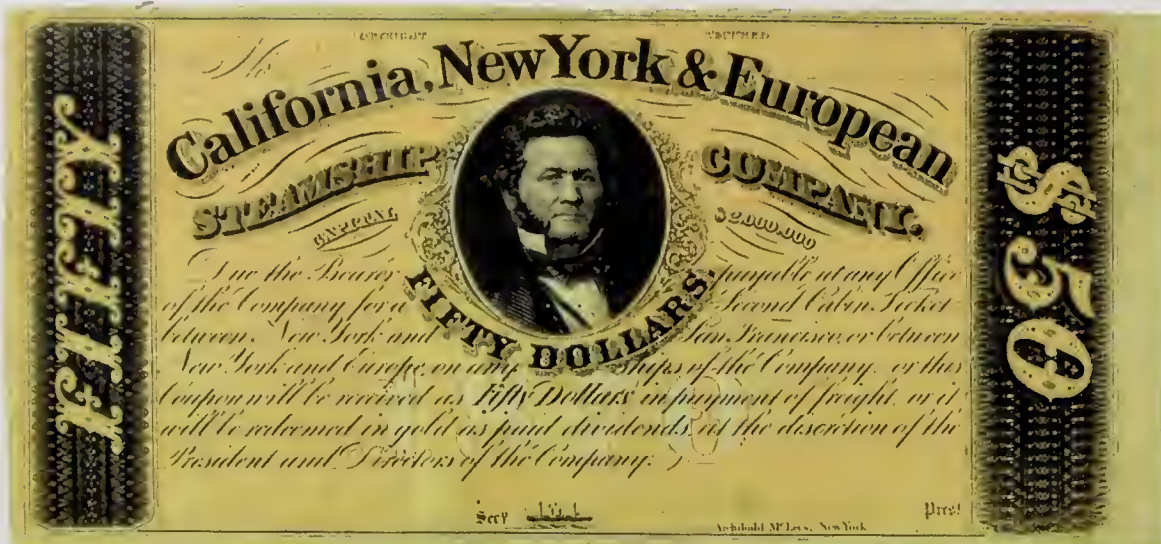 COPYRIGHT SECURED
No
California, New York & European
STEAMSHIP COMPANY.
CAPITAL $2.000.000
FIFTY
$50
Due the Bearer payable at any Office
of the Company, for a Second Cabin Ticket
between New York and San Francisco, or between
New York and Europe, on any Ships of the Company, or this
Coupon will be received as Fifty Dollars in payment of freight, or it
will be redeemed in gold as paid dividends, at the discretion of the
President and Directors of the Company.
FIFTY DOLLARS.
Secy Prest
Archibald McLees, New York